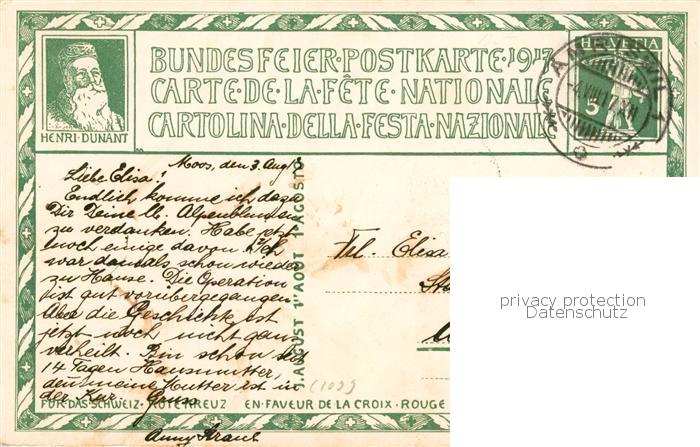 BUNDESFEIER-POSTKARTE·1917
CARTE·DE·LA·FÊTE·NATIONALE
CARTOLINA·DELLA·FESTA·NAZIONALE
HENRI·DUNANT
HELVETIA
5
Moos, den 3. Aug
Liebe Elisa!
Endlich komme ich dazu
Dir Deine lb. Alpenblumen
zu verdanken. Habe jetzt
noch einige davon. Ich
war damals schon wieder
zu Hause. Die Operation
ist gut vorübergegangen.
Aber die Geschichte ist
jetzt noch nicht ganz
verheilt. Bin schon seit
14 Tagen Hausmutter,
denn meine Mutter ist in
der Kur. Gruss
Anny
1.AUGUST 1er AOUT 1º AGOSTO
Frl. Elisa
(109)
privacy protection
Datenschutz
FÜR·DAS·SCHWEIZ·ROTE·KREUZ EN·FAVEUR DE LA CROIX·ROUGE